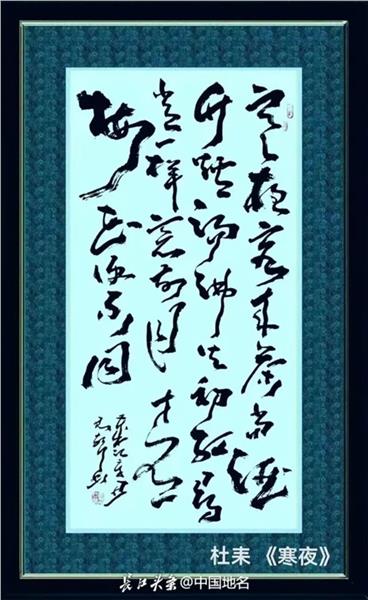 寒夜客来茶当酒
竹炉汤沸火初红寻
常一样窗前月才有
梅花便不同
杜耒 《寒夜》
长江头条@中国地名